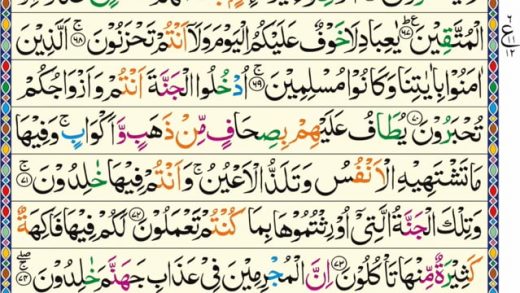 الْمُتَّقِيْنَ ﴿٦٧﴾ يٰعِبَادِ لَا خَوْفٌ عَلَيْكُمُ الْيَوْمَ وَلَاۤ اَنْتُمْ تَحْزَنُوْنَ ۚ﴿٦٨﴾ اَلَّذِيْنَ
اٰمَنُوْا بِاٰيٰتِنَا وَكَانُوْا مُسْلِمِيْنَ ۚ﴿٦٩﴾ اُدْخُلُوا الْجَنَّةَ اَنْتُمْ وَاَزْوَاجُكُمْ
تُحْبَرُوْنَ ﴿٧٠﴾ يُطَافُ عَلَيْهِمْ بِصِحَافٍ مِّنْ ذَهَبٍ وَّاَكْوَابٍ ۚ وَفِيْهَا
مَا تَشْتَهِيْهِ الْاَنْفُسُ وَتَلَذُّ الْاَعْيُنُ ۚ وَاَنْتُمْ فِيْهَا خٰلِدُوْنَ ۚ﴿٧١﴾
وَتِلْكَ الْجَنَّةُ الَّتِيْۤ اُوْرِثْتُمُوْهَا بِمَا كُنْتُمْ تَعْمَلُوْنَ ﴿٧٢﴾ لَكُمْ فِيْهَا فَاكِهَةٌ
كَثِيْرَةٌ مِّنْهَا تَاْكُلُوْنَ ﴿٧٣﴾ اِنَّ الْمُجْرِمِيْنَ فِيْ عَذَابِ جَهَنَّمَ خٰلِدُوْنَ ۚۖ﴿٧٤﴾